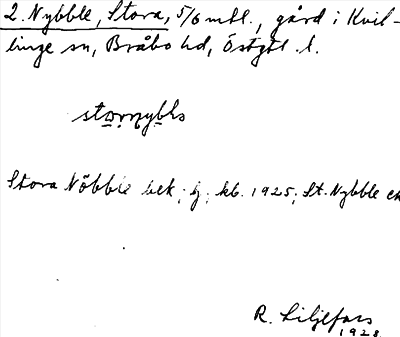 2. Nybble, Stora, 5/6 mtl., gård i Kvil-
linge sn, Bråbo hd, Östgtl. l.
Stora Nöbble bek. j. kb. 1925; St. Nybble ek
R. Liljefors
1928.